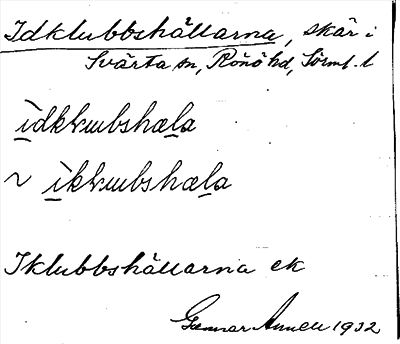 Idklubbshällarna, skär i
Svärta sn, Rönö hd, Sörml. l
ìdkkumbshæla
~ ìkkumbshæla
Iklubbshällarna ek
Gunnar 1932